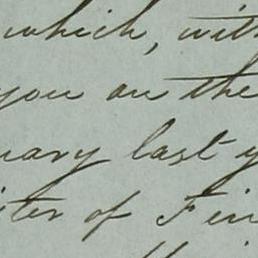 which, with
you on the
uary last y
ister of Fin